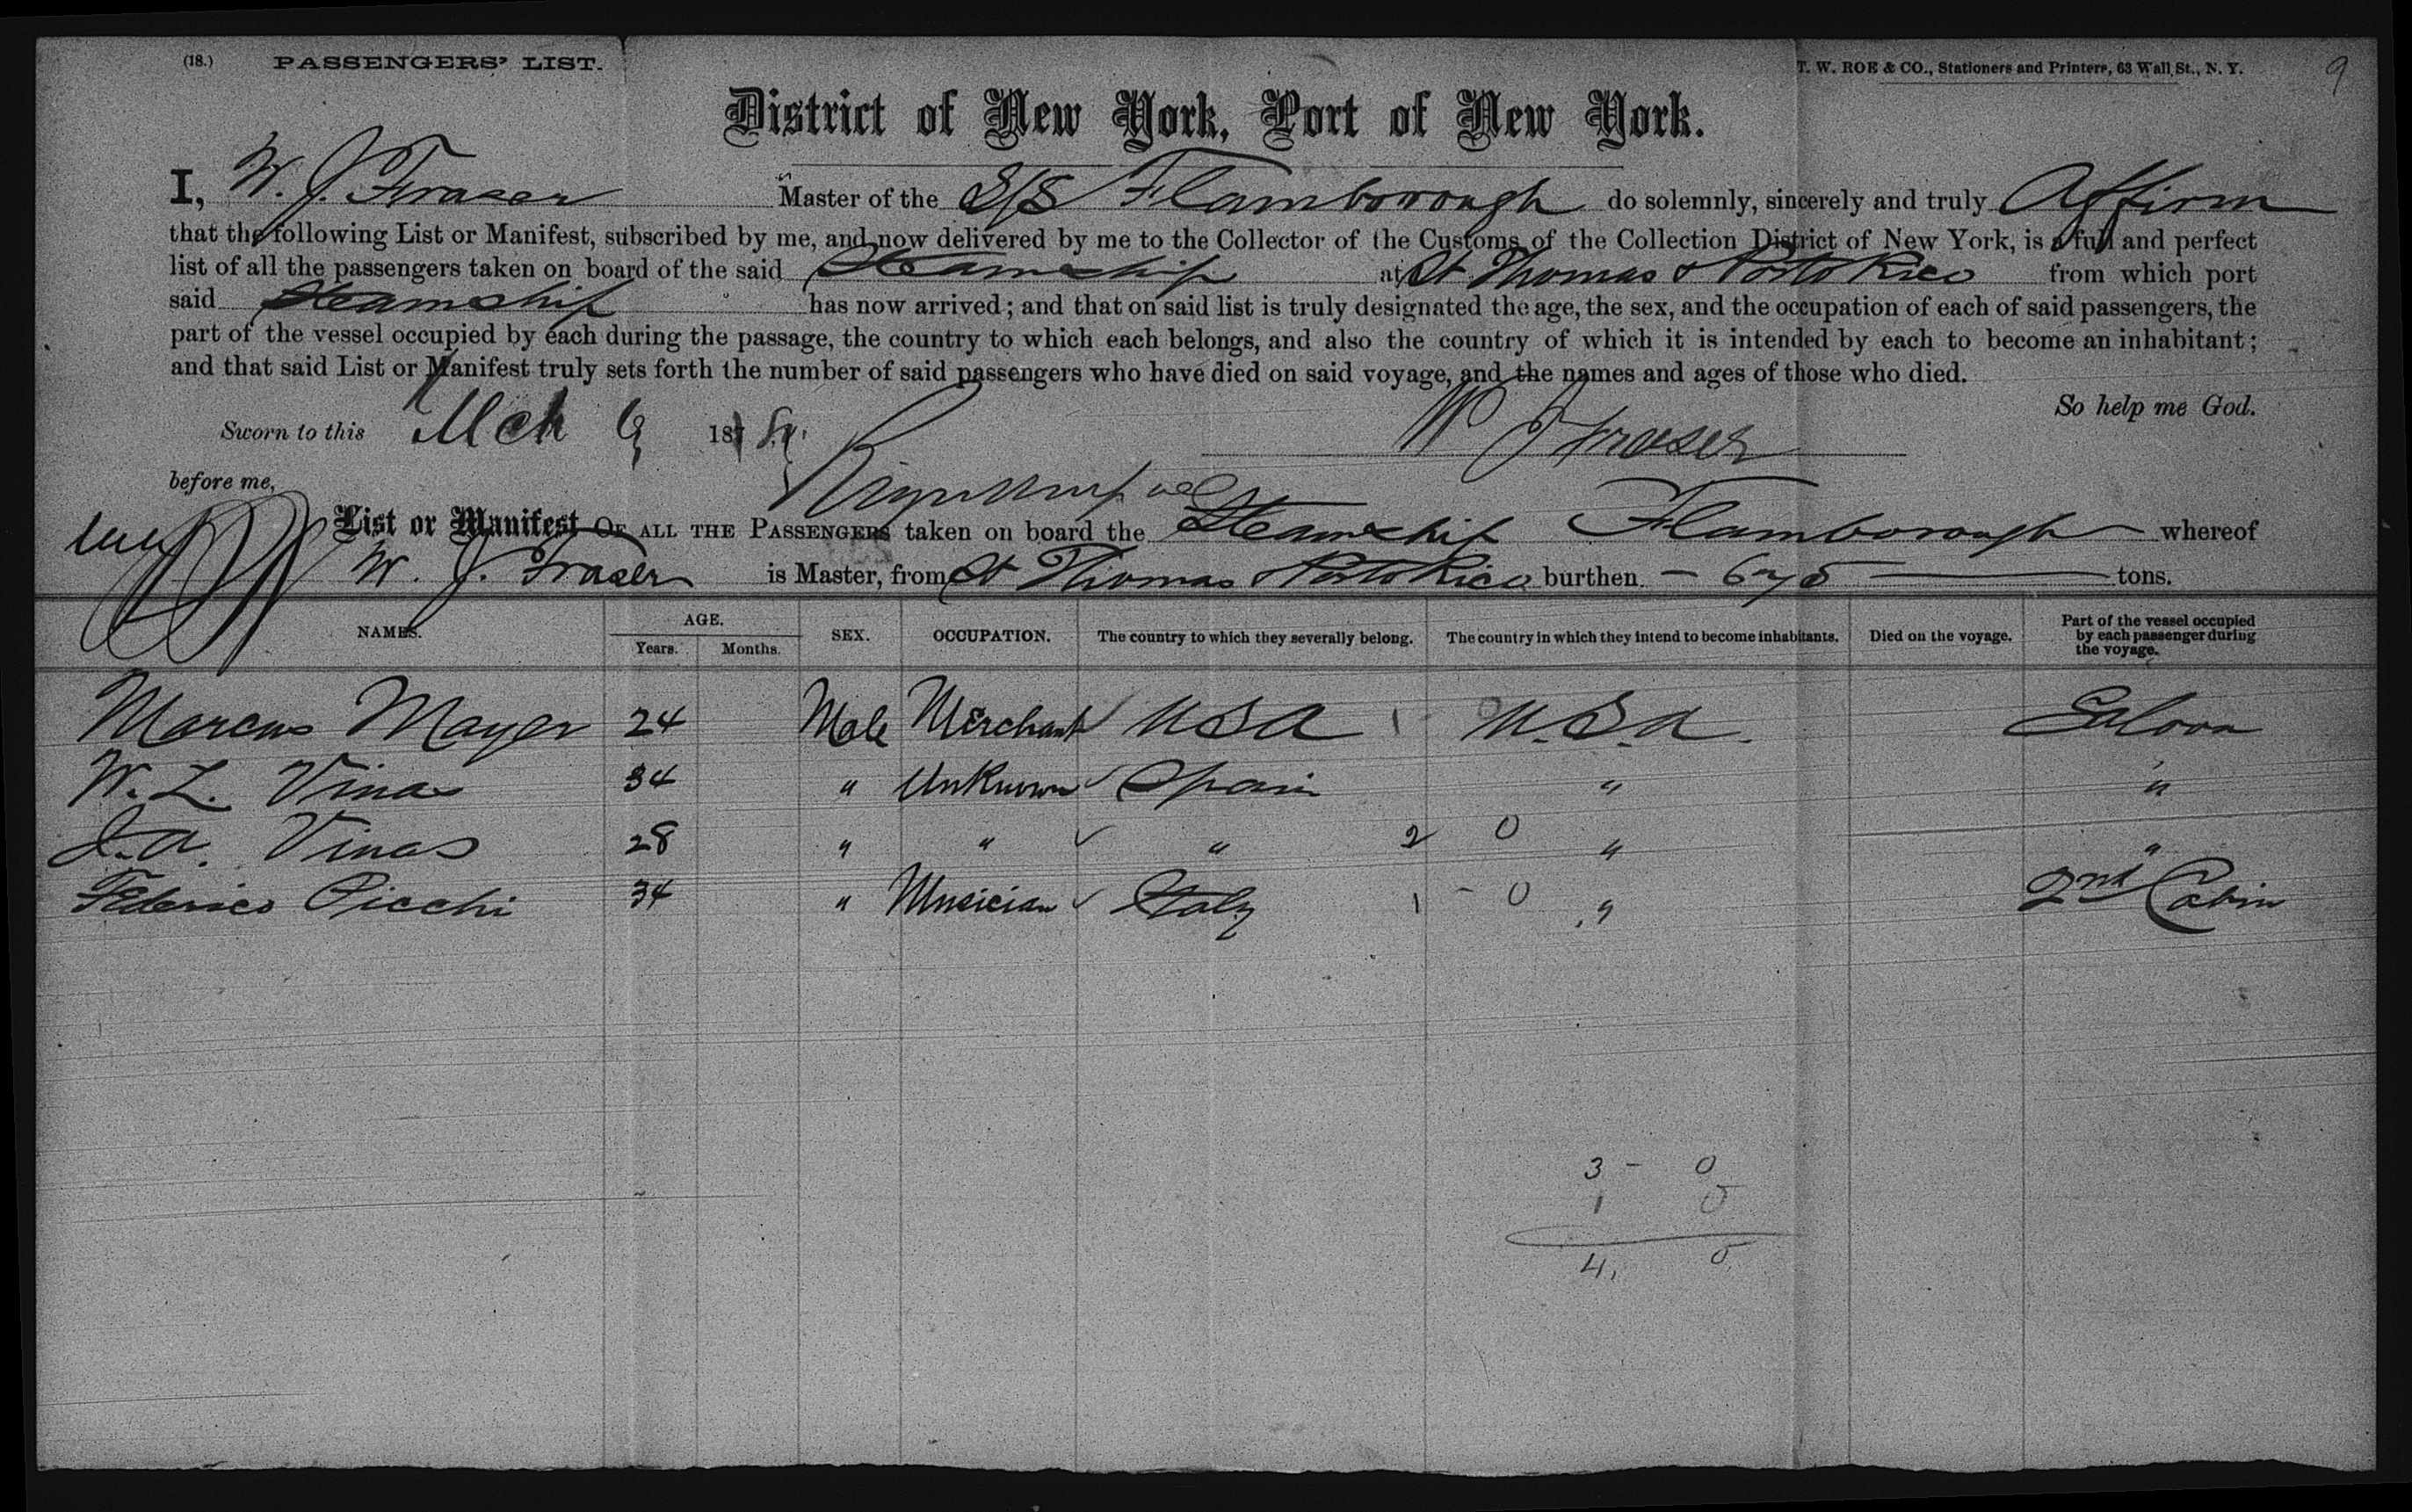 (18.) PASSENGERS' LIST. T. W. ROE & CO., Stationers and Printers, 63 Wall St., N. Y. 9
District of New York, Port of New York.
I, W. J. Fraser Master of the S/S Flamborough do solemnly, sincerely and truly Affirm
that the following List or Manifest, subscribed by me, and now delivered by me to the Collector of the Customs of the Collection District of New York, is a full and perfect
list of all the passengers taken on board of the said Steamship at St Thomas & Porto Rico from which port
said Steamship has now arrived; and that on said list is truly designated the age, the sex, and the occupation of each of said passengers, the
part of the vessel occupied by each during the passage, the country to which each belongs, and also the country of which it is intended by each to become an inhabitant;
and that said List or Manifest truly sets forth the number of said passengers who have died on said voyage, and the names and ages of those who died.
So help me God.
Sworn to this Mch 9 18 W J Fraser
before me,
List or Manifest OF ALL THE PASSENGERS taken on board the Steamship Flamborough whereof
W. J. Fraser is Master, from St Thomas & Porto Rico burthen - 675 - tons.
NAMES. AGE. Years. Months. SEX. OCCUPATION. The country to which they severally belong. The country in which they intend to become inhabitants. Died on the voyage. Part of the vessel occupied by each passenger during the voyage.
Marcus Mayer 24 Male Merchant USA 1 U.S.A. Saloon
W. L. Vinas 34 " Unknown Spain " "
J. A. Vinas 28 " " " 2 0 " "
Federico Picchi 34 " Musician Italy 1 - 0 " 2nd Cabin
3 - 0
1 0
4, 0